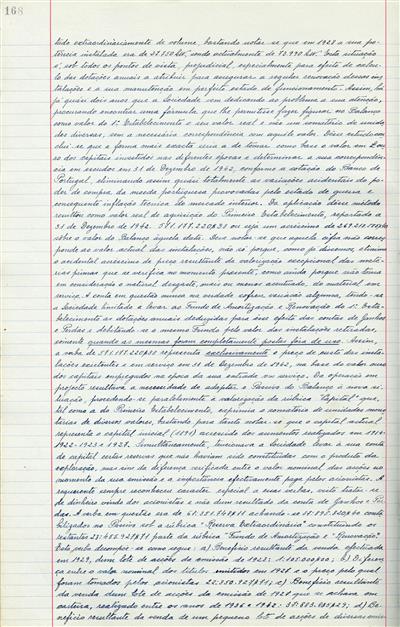 168
tido extraordinariamente de volume, bastando notar se que em 1928 a sua po-
tência instalada era de 37.750 kW, sendo actualmente de 73.990 kW. Esta situação
é, sob todos os pontos de vista, prejudicial, especialmente para efeito de calcu-
lo das dotações anuais a atribuir para assegurar a regular renovação dessas ins-
talações e a sua manutenção em perfeito estado de funcionamento. Assim, há
já quasi dois anos que a Sociedade vem dedicando ao problema a sua atenção,
procurando encontrar uma formula que lhe permitisse fazer figurar no Balanço
como valor do 1º Estabelecimento o seu valor real e não um somatório de moedas
diversas, sem a necessária correspondência com aquele valor. Desses estudos con-
clui se que a forma mais exacta seria a de tomar como base o valor em Ouro
dos capitais investidos nas diferentes épocas e determinar a sua correspondên-
cia em escudos em 31 de Dezembro de 1942, conforme a cotação do Banco de
Portugal, eliminando assim quasi totalmente as variações resultantes do po-
der de compra da moeda portuguesa provocadas pelo estado de guerra e
consequente inflação tecnica do mercado interior. Da aplicação dêsse metodo
resultou como valor real de aquisição do Primeiro Estabelecimento, reportado a
31 de Dezembro de 1942. 581.188.220$38 ou seja um acréscimo de
sobre o valor do Balanço áquela data. Deve notar se que aquela cifra não corres-
ponde ao valor actual das instalações, não só porque, como já dissemos, elimina
o acidental acréscimo de preço resultante da valorização excepcional das mate-
rias primas que se verifica no momento presente, como ainda porque não toma
em consideração o natural desgaste, mais ou menos acentuado, do material em
serviço. A conta em questão nunca na verdade sofreu variação alguma, tendo se
a Sociedade limitado a levar ao Fundo de Amortização e Renovação do 1º Estabe-
lecimento as dotações anuais deduzidas para esse efeito das contas de Ganhos
e Perdas e debitando se o mesmo Fundo pelo valor das instalações retiradas,
somente quando as mesmas foram completamente postas fora de uso. Assim,
a verba de 581.188.220$38 representa exclusivamente o preço de custo das insta-
lações existentes e em serviço em 31 de Dezembro de 1942, na base do valor ouro
dos capitais empregados na época da sua entrada no serviço. Da operação em
projecto resultava a necessidade de adaptar o Passivo do Balanço á nova si-
tuação, procedendo-se paralelamente á valorização da rubrica "Capital" que,
tal como a do Primeiro Estabelecimento, exprimia o somatório de unidades mone-
tárias de diversos valores, bastando para tanto notar-se que o capital actual
representa o capital inicial (1891) acrescido dos aumentos realizados em 1914-
1922-1923 e 1928. Simultaneamente, tencionava a Sociedade levar á sua conta
de capital certas reservas que não haviam sido constituidas com o producto da
exploração, mas sim da diferença verificada entre o valor nominal das acções no
momento da sua emissão e a importância efectivamente paga pelos acionistas. A
requerente sempre reconheceu caracter especial a essas verbas, visto tratar-se
de dinheiro vindo dos accionistas e não dum resultado da conta de Ganhos e Per-
das. A verba em questão era de achando-se conta-
bilizados no Passivo sob a rubrica "Reserva Extraordinária" constituindo os
restantes 23.485.921$91 parte da rubrica "Fundo de Amortização e Renovação".
Esta verba decompõe-se como segue: a) Beneficio resultante da venda efectuada
em 1929, dum lote de acções da emissão de 1923: b) Diferen-
ça entre o valor nominal dos titulos emitidos em 1928 e o preço pelo qual
foram tomados pelos acionistas 22.350.929$91; c) Beneficio resultante
da venda dum lote de acções da emissão de 1928 que se achava em
carteira, realizada entre os anos de 1936 e 1942: d) Be-
neficio resultante da venda de um pequeno lote de acções de diversas emis-